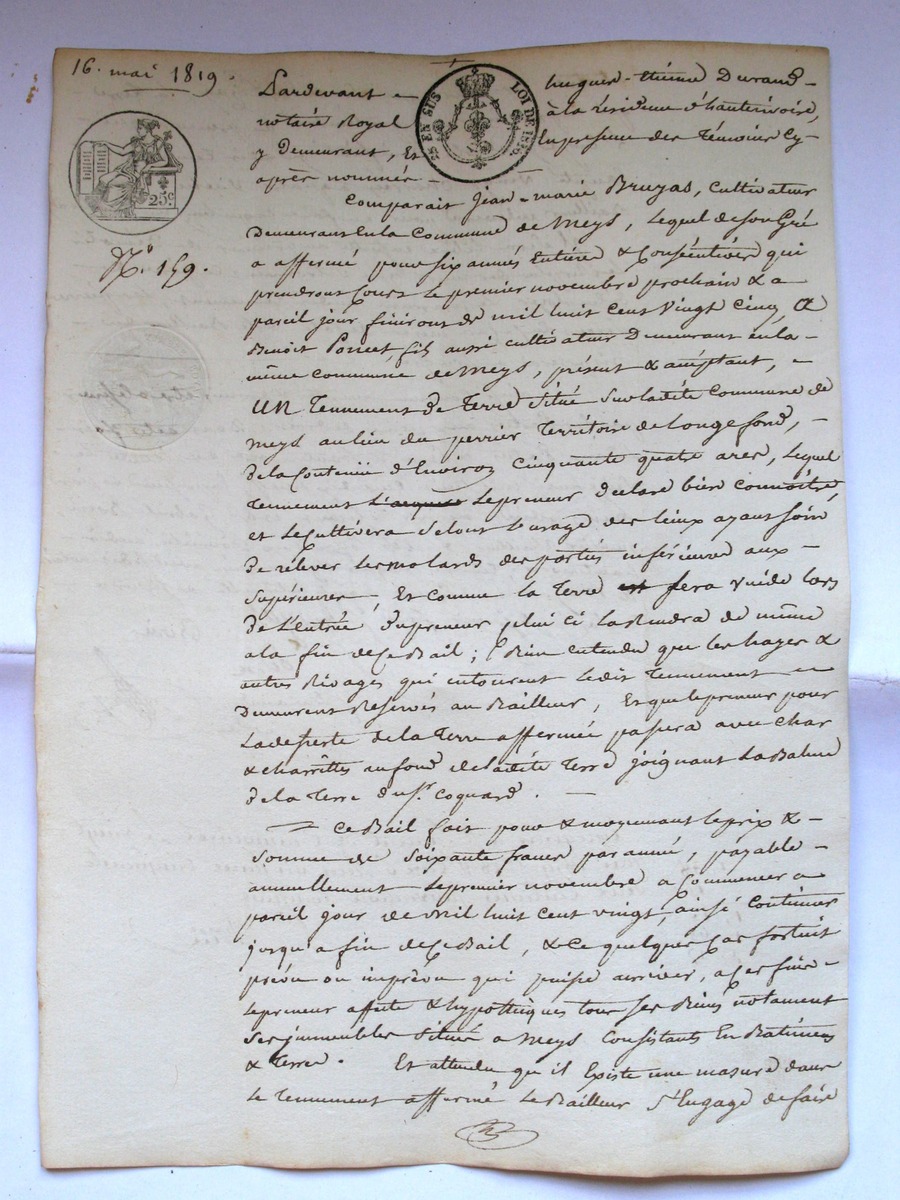 16. mai 1819.
25c
N.º 159.
25 EN SUS LOI DE 1816
Pardevant hugues-Etienne Durand
notaire Royal à la résidence d'hauterivoire,
y Demeurant, Et En présence des Témoins Cy-
après nommés
Comparait Jean-marie Bruyas, Cultivateur
Demeurant En la Commune de Meys, lequel de son Gré
a affermé pour six années Entières & Consécutives qui
prendront Cours le premier novembre prochain & a
pareil jour finiront de mil huit cent vingt cinq, a
Benoît Poncet fils aussi cultivateur Demeurant en la
même commune de Meys, présent & acceptant,
UN Tennement De Terre Situé Sur ladite Commune de
Meys au lieu du perrier Territoire de Longefond,
de la Contenue d'Environ Cinquante quatre ares, lequel
Tennement le preneur Déclare bien Connoître
et le Cultivera Selon l'usage des lieux ayant soin
de relever les molards des parties inférieures aux
Supérieures, Et comme la Terre sera vuide lors
De l'entrée du preneur celui ci la Rendra de même
a la fin de Ce Bail; Bien entendu que les hayes &
autres Rivages qui entourent ledit Tennement
Demeurent Réservés au Bailleur, Et que le preneur pour
la desserte de la Terre affermée passera avec char
& charrettes au fond de ladite Terre joignant la Balme
de la Terre du Sr. Coquard.
Ce Bail fait pour & moyennant le prix &
Somme de Soixante francs par année, payable
annuellement le premier novembre a Commencer a
pareil jour de Mil huit Cent vingt, ainsi Continuer
jusqu'a fin de Ce Bail, & Ce quelque Cas fortuit
prévu ou imprévu qui puisse arriver, a Ces fins
le preneur affecte & hypothèques tous Ses Biens notament
Ses immeubles Situés a Meys Consistants En Bâtimens
& Terre. Et attendu qu'il Existe une masure dans
le Tennement affermé le Bailleur S'Engage de faire